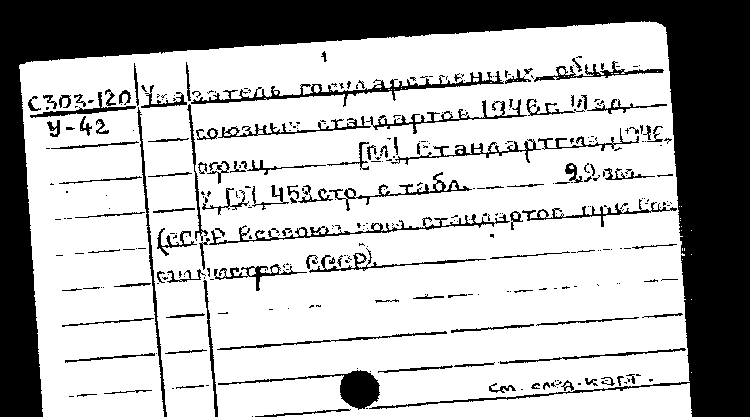 1
С303-120 Указатель государственных обще-
У-42 союзных стандартов 1946 г. Изд.
офиц. [М], Стандартгиз, 1946.
X, [2], 458 стр., с табл. 22 см.
(СССР. Всесоюз. ком. стандартов при Сов.
министров СССР).
см. след. карт.